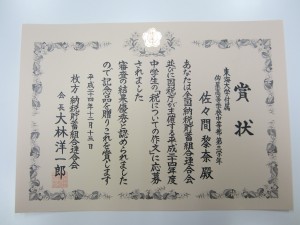 賞状
東海大学付属
仰星高等学校中等部 第三学年
佐々間 黎泰 殿
あなたは全国納税貯蓄組合連合会
並びに国税庁が主催する平成二十四年度
中学生の「税についての作文」に応募
されました
審査の結果優秀と認められました
ので記念品を贈りこれを賞します
平成二十四年十二月十五日
枚方納税貯蓄組合連合会
会長 大林洋一郎